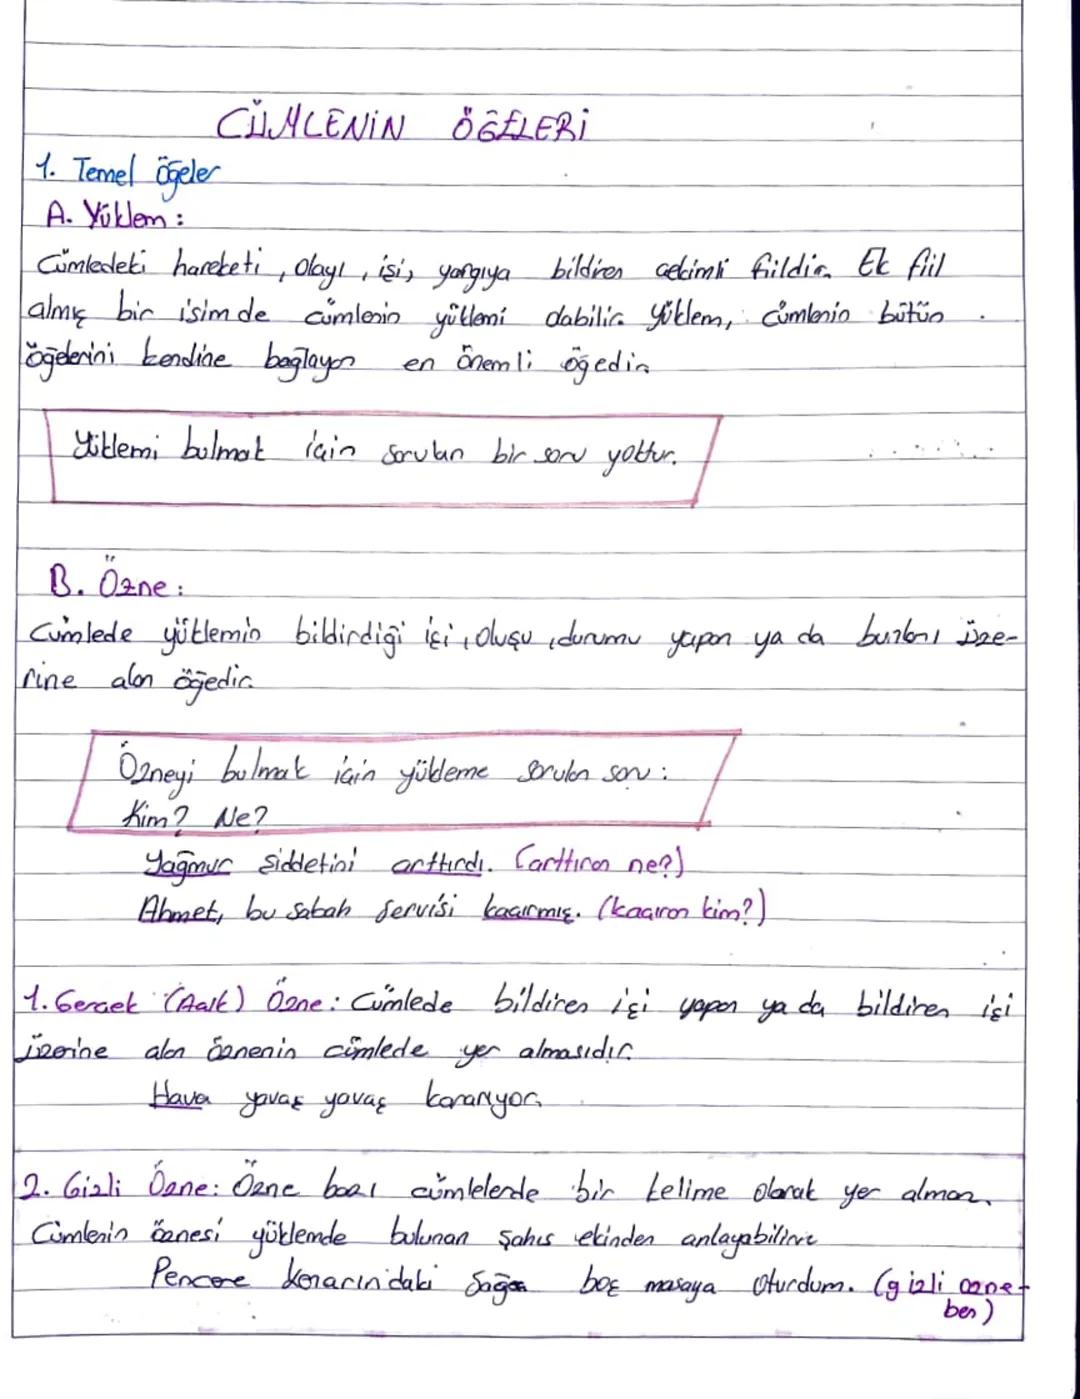 CÜMLENİN ÖĞELERİ
1. Temel öğeler
A. Yüklem:
Cümledeki hareketi, olayı, işi, yargıya bildiren çekimli fiildir. Ek fiil
almış bir isim de cümlenin yüklemi olabilir. Yüklem, cümlenin bütün
öğelerini kendine bağlayan en önemli öğedir.
Yüklemi bulmak için sorulan bir soru yoktur.
B. Özne:
Cümlede yüklemin bildirdiği işi, oluşu, durumu yapan ya da bunları üze-
rine alan öğedir.
Özneyi bulmak için yükleme sorulan soru:
Kim? Ne?
Yağmur şiddetini arttırdı. (arttıran ne?)
Ahmet, bu sabah servisi kaçırmış. (kaçıran kim?)
1. Gerçek (Açık) Özne: Cümlede bildiren işi yapan ya da bildiren işi
üzerine alan öznenin cümlede yer almasıdır.
Hava yavaş yavaş kararıyor.
2. Gizli Özne: Özne bazı cümlelerde bir kelime olarak yer almaz.
Cümlenin öznesi yüklemde bulunan şahıs ekinden anlayabiliriz
Pencere kenarındaki boş masaya oturdum. (gizli özne-
ben)